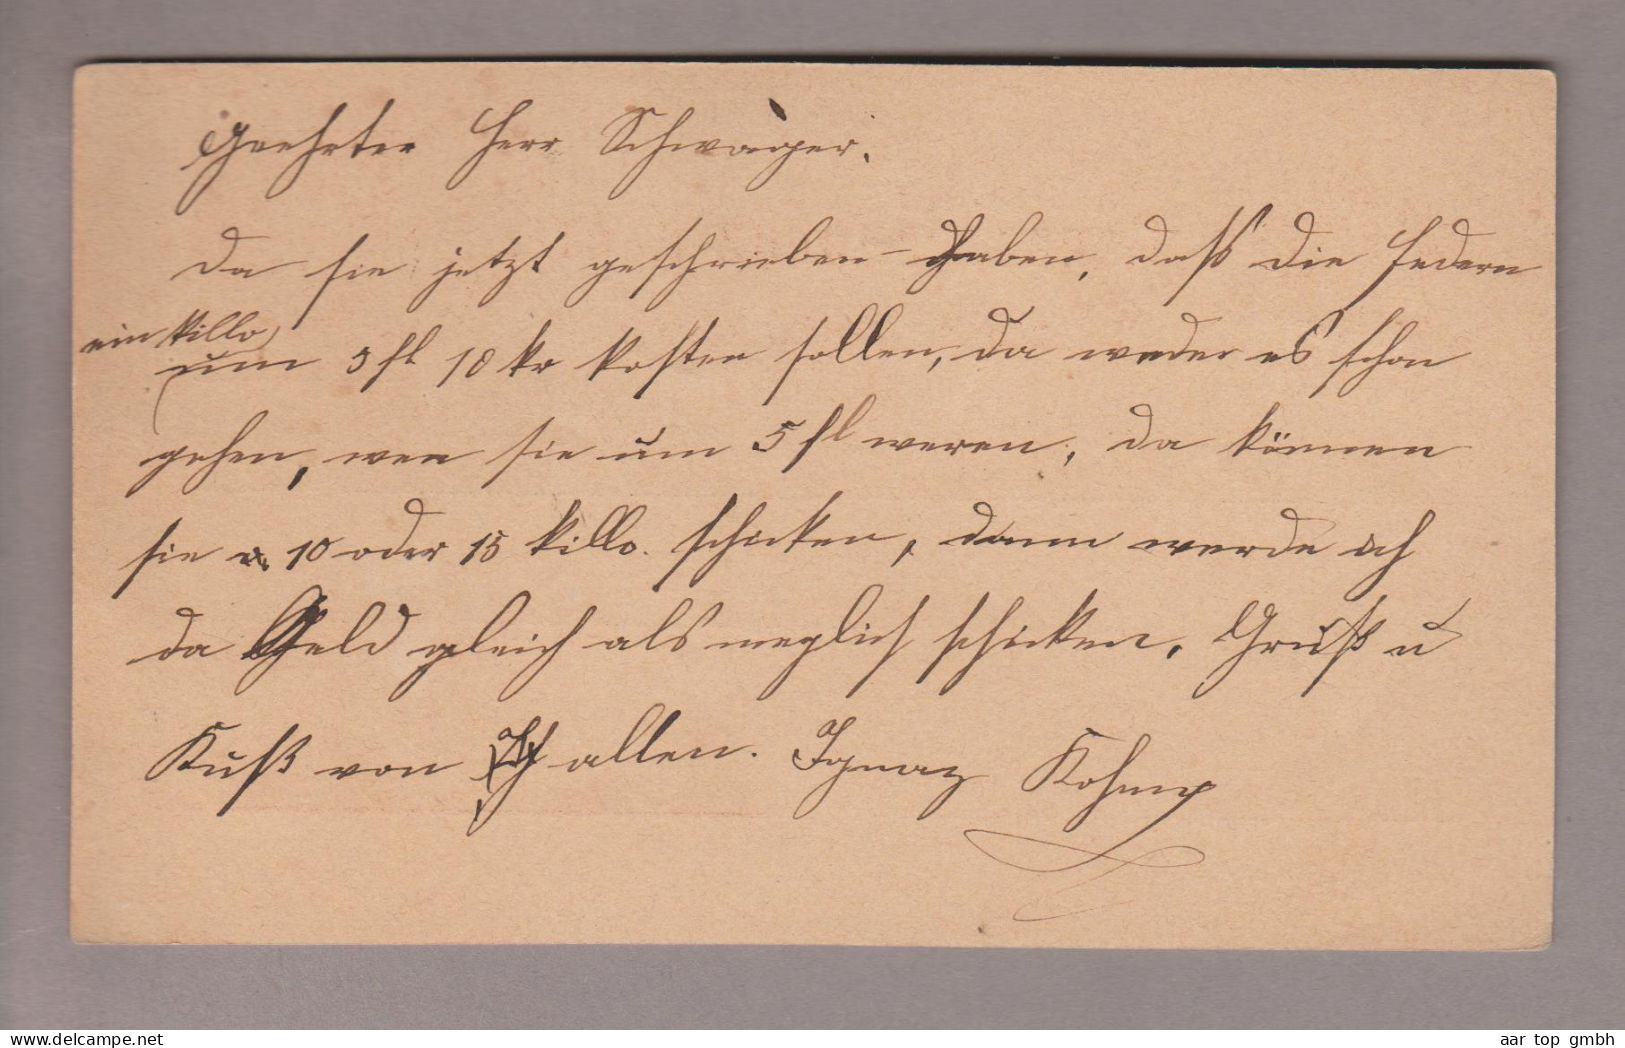 Geehrter Herr Schwager.
Da sie jetzt geschrieben haben, daß die Federn
ein Killo
um 5 fl 10 kr kosten sollen, da weder es schon
gehen, wen sie um 5 fl weren, da können
sie 10 oder 15 Killo schicken, dann werde ich
da Geld gleich als meglich schicken. Gruß u
Kuß von allen. Ignaz
aar top gmbh